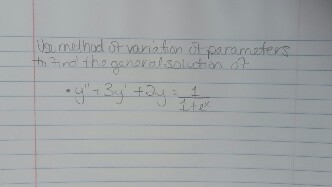 Use method of variation of parameters
to find the general solution of
• y'' + 3y' + 2y = 1/(1+eˣ)